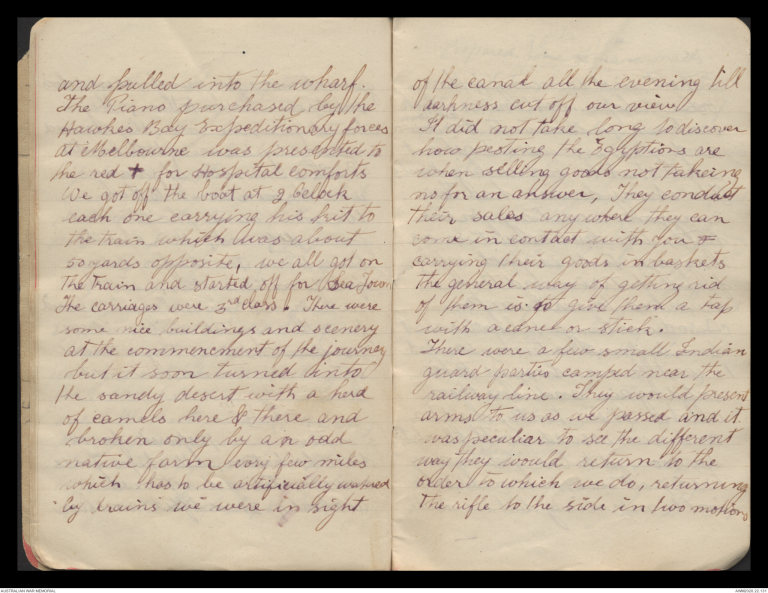 and pulled into the wharf.
The Piano purchased by the
Hawkes Bay Expeditionary forces
at Melbourne was presented to
the red + for Hospital comforts
We got off the boat at 2 Oclock
each one carrying his kit to
the train which was about
50 yards opposite, we all got on
the train and started off for Sea Town
The carriages were 3rd class. There were
some nice buildings and scenery
at the commencment of the journey
but it soon turned into
the sandy desert with a herd
of camels here & there and
broken only by an odd
native farm every few miles
which has to be artificially watered
by drains we were in sight
of the canal all the evening till
darkness cut off our view
It did not take long to discover
how pesting the Egyptions are
when selling goods not takeing
no for an answer, They conduct
their sales anywhere they can
come in contact with you &
carrying their goods in baskets
the general way of getting rid
of them is to give them a tap
with a cane or stick.
There were a few small Indian
guard parties camped near the
railway line. They would present
arms to us as we passed and it
was peculiar to see the different
way they would return to the
order to which we do, returning
the rifle to the side in two motions
AUSTRALIAN WAR MEMORIAL